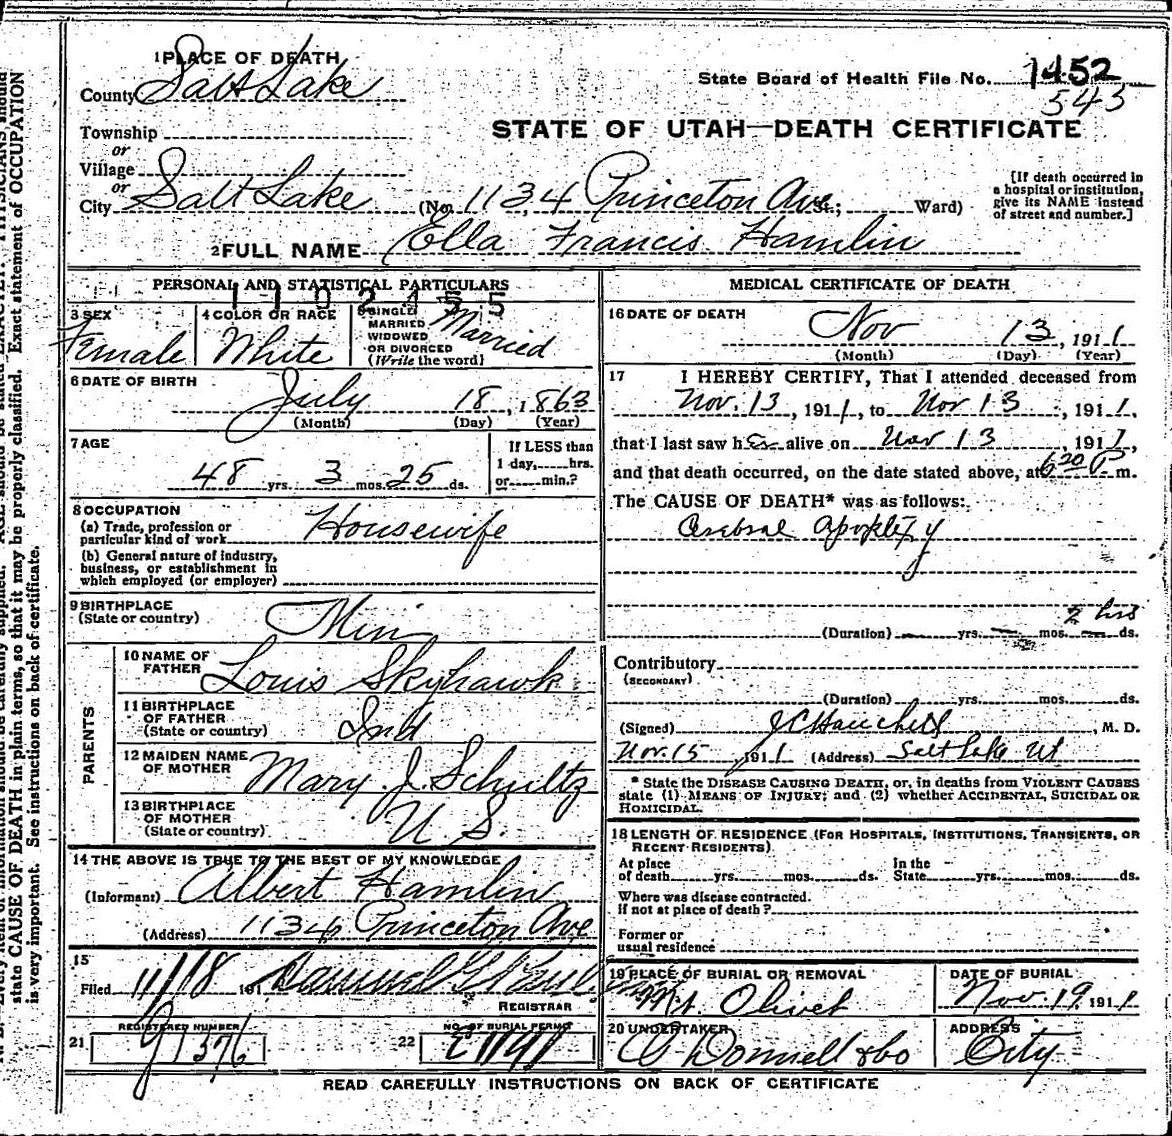 1 PLACE OF DEATH
State Board of Health File No. 1452
543
County Salt Lake
STATE OF UTAH—DEATH CERTIFICATE
Township
or
Village
or
City Salt Lake (No. 1134 Princeton Ave St.; Ward)
[If death occurred in
a hospital or institution,
give its NAME instead
of street and number.]
2 FULL NAME Ella Francis Hamlin
PERSONAL AND STATISTICAL PARTICULARS
1102455
3 SEX
Female
4 COLOR OR RACE
White
5 SINGLE
MARRIED
WIDOWED
OR DIVORCED
(Write the word)
Married
6 DATE OF BIRTH
July 18, 1863
(Month) (Day) (Year)
7 AGE
48 yrs. 3 mos. 25 ds.
If LESS than
1 day, hrs.
or min.?
8 OCCUPATION
(a) Trade, profession or
particular kind of work Housewife
(b) General nature of industry,
business, or establishment in
which employed (or employer)
9 BIRTHPLACE
(State or country) Min
PARENTS
10 NAME OF
FATHER Louis Skyhawk
11 BIRTHPLACE
OF FATHER
(State or country) Ind
12 MAIDEN NAME
OF MOTHER Mary J. Schultz
13 BIRTHPLACE
OF MOTHER
(State or country) U. S.
14 THE ABOVE IS TRUE TO THE BEST OF MY KNOWLEDGE
(Informant) Albert Hamlin
(Address) 1134 Princeton Ave
15
Filed 11/18 191
REGISTRAR
21 REGISTERED NUMBER
J1376
22 NO. OF BURIAL PERMIT
E1191
MEDICAL CERTIFICATE OF DEATH
16 DATE OF DEATH
Nov 13, 1911
(Month) (Day) (Year)
17 I HEREBY CERTIFY, That I attended deceased from
Nov. 13, 1911, to Nov 13, 1911,
that I last saw her alive on Nov 13, 1911,
and that death occurred, on the date stated above, at 6 20 P m.
The CAUSE OF DEATH* was as follows:
Cerebral apoplexy
2 hrs
(Duration) — yrs. — mos. — ds.
Contributory
(SECONDARY)
(Duration) yrs. mos. ds.
(Signed) M. D.
Nov. 15 1911 (Address) Salt Lake Ut
* State the DISEASE CAUSING DEATH, or, in deaths from VIOLENT CAUSES
state (1) MEANS OF INJURY; and (2) whether ACCIDENTAL, SUICIDAL OR
HOMICIDAL.
18 LENGTH OF RESIDENCE (FOR HOSPITALS, INSTITUTIONS, TRANSIENTS, OR
RECENT RESIDENTS).
At place
of death yrs. mos. ds.
In the
State yrs. mos. ds.
Where was disease contracted.
if not at place of death?
Former or
usual residence
19 PLACE OF BURIAL OR REMOVAL
Mt Olivet
DATE OF BURIAL
Nov. 19 1911
20 UNDERTAKER
O Donnell & Co
ADDRESS
City
READ CAREFULLY INSTRUCTIONS ON BACK OF CERTIFICATE
state CAUSE OF DEATH in plain terms, so that it may be properly classified. Exact statement of OCCUPATION
is very important. See instructions on back of certificate.